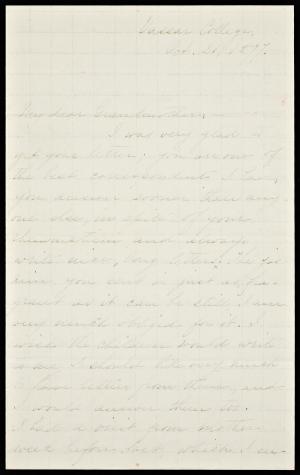 Vassar College,
Oct. 20, 1897.
My dear Grandmother:-
I was very glad to
get your letter; you are one of
the best correspondents I have,
you answer sooner than any
one else, in spite of your
rheumatism and always
write nice, long letters. The
you sent is just as fra-
grant as it can be still. I am
very much obliged for it. I
wish the children would write
to me, I should like very much
to have letters from them, and
I would answer them too.
I had a visit from mother
week before last, which I en-